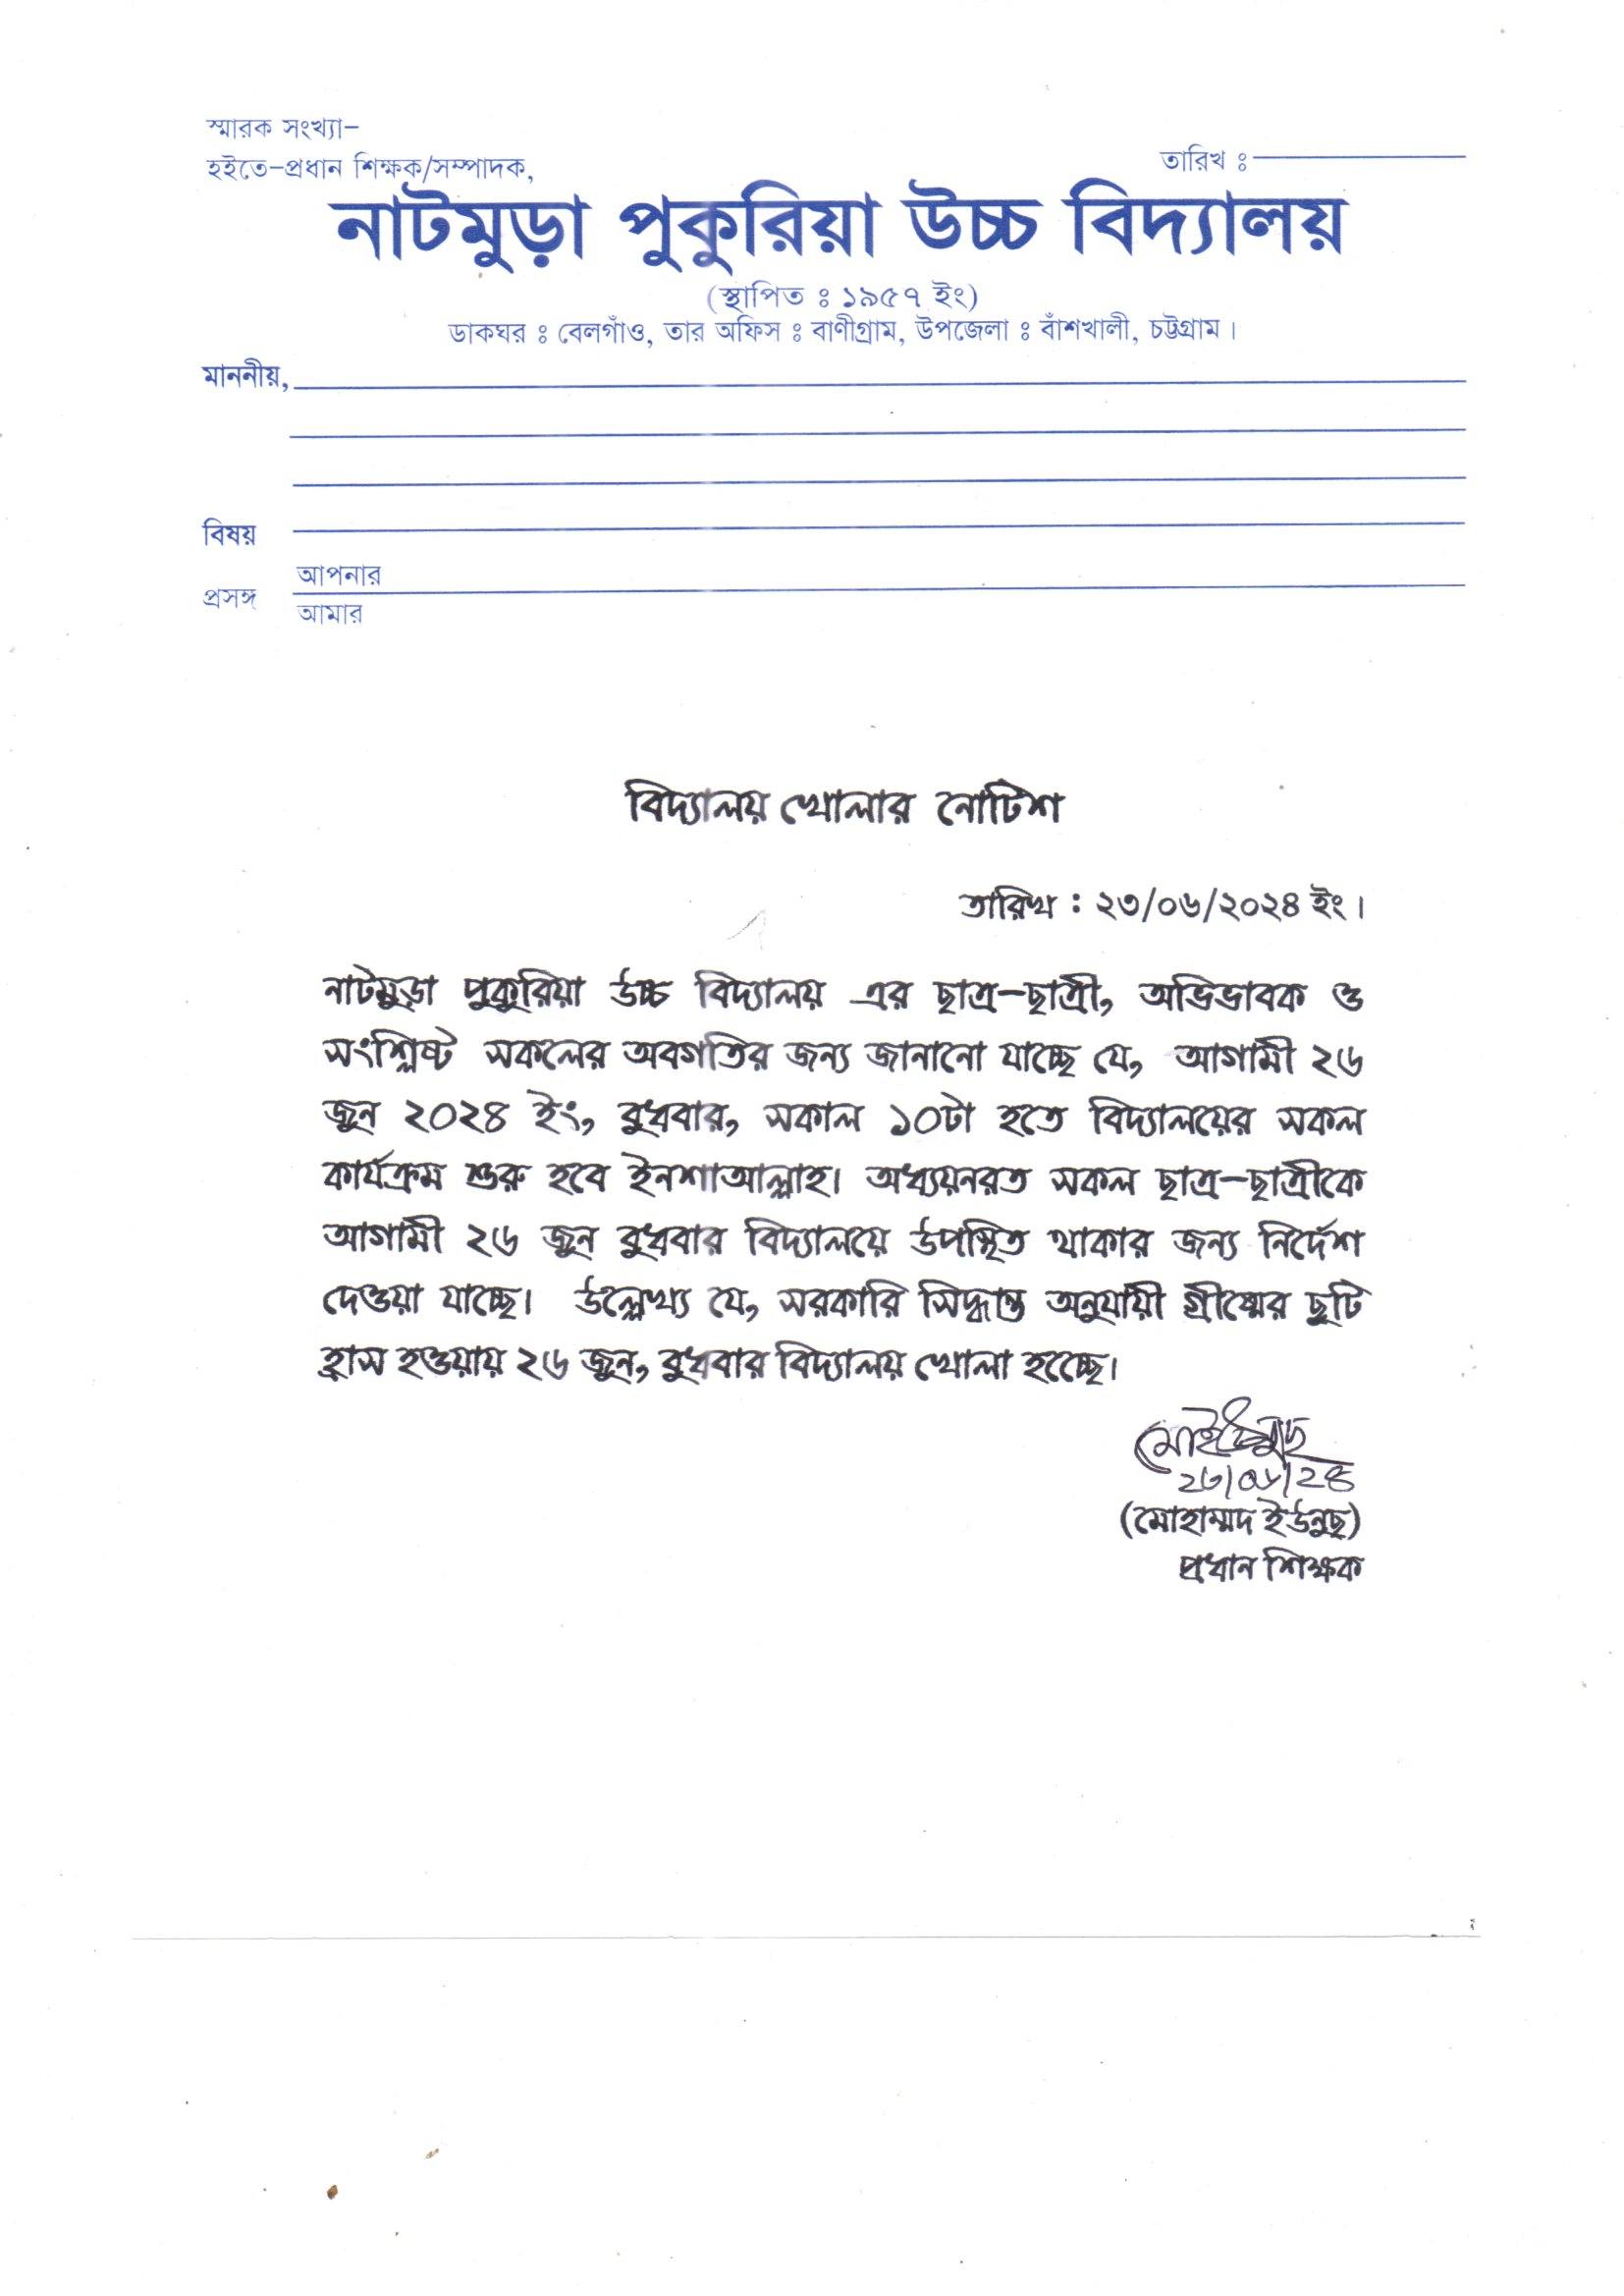 স্মারক সংখ্যা-
হইতে-প্রধান শিক্ষক/সম্পাদক,
তারিখ ঃ
নাটমুড়া পুকুরিয়া উচ্চ বিদ্যালয়
(স্থাপিত ঃ ১৯৫৭ ইং)
ডাকঘর ঃ বেলগাঁও, তার অফিস ঃ বাণীগ্রাম, উপজেলা ঃ বাঁশখালী, চট্টগ্রাম।
মাননীয়,
বিষয়
আপনার
প্রসঙ্গ
আমার
বিদ্যালয় খোলার নোটিশ
তারিখ : ২৩/০৬/২০২৪ ইং।
নাটমুড়া পুকুরিয়া উচ্চ বিদ্যালয় এর ছাত্র-ছাত্রী, অভিভাবক ও
সংশ্লিষ্ট সকলের অবগতির জন্য জানানো যাচ্ছে যে, আগামী ২৬
জুন ২০২৪ ইং, বুধবার, সকাল ১০টা হতে বিদ্যালয়ের সকল
কার্যক্রম শুরু হবে ইনশাআল্লাহ। অধ্যয়নরত সকল ছাত্র-ছাত্রীকে
আগামী ২৬ জুন বুধবার বিদ্যালয়ে উপস্থিত থাকার জন্য নির্দেশ
দেওয়া যাচ্ছে। উল্লেখ্য যে, সরকারি সিদ্ধান্ত অনুযায়ী গ্রীষ্মের ছুটি
হ্রাস হওয়ায় ২৬ জুন, বুধবার বিদ্যালয় খোলা হচ্ছে।
(মোহাম্মদ ইউনুছ)
প্রধান শিক্ষক